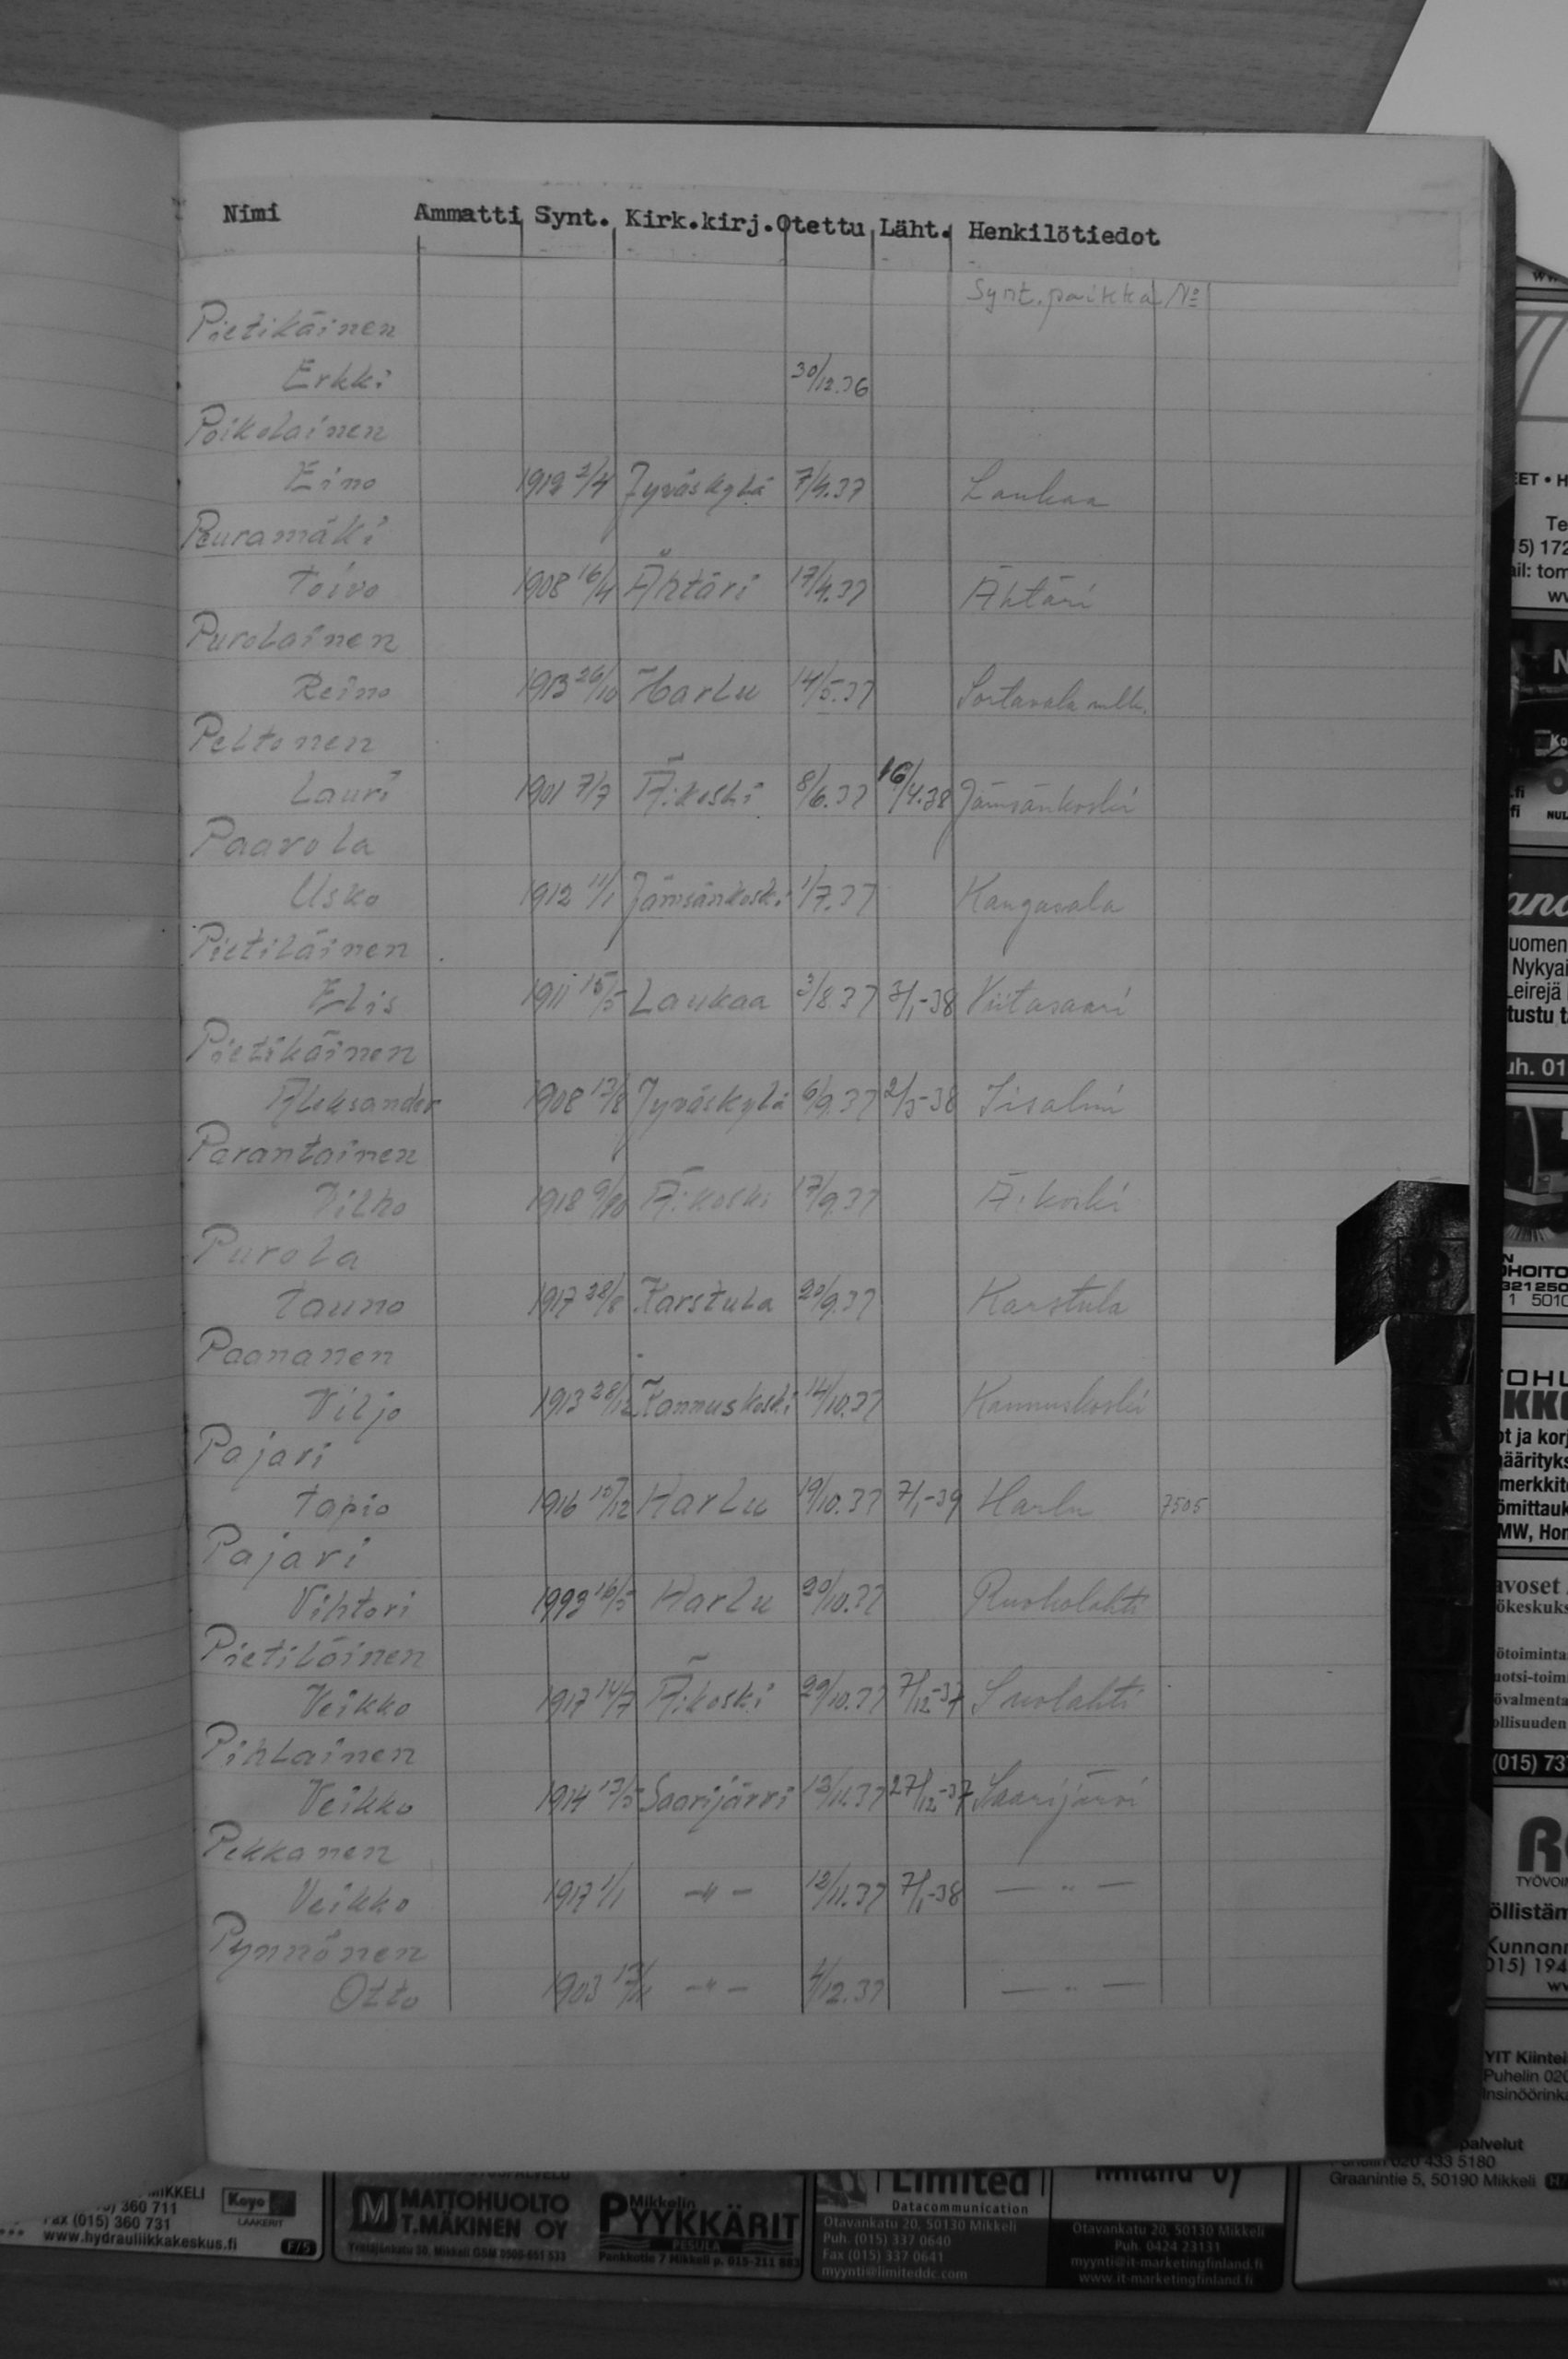 Nimi Ammatti Synt. Kirk.kirj. Otettu Läht. Henkilötiedot
Synt.paikka №
Pietikäinen
Erkki 30/12.36
Poikolainen
Eino 2/4 Jyväskylä 7/4.37 Laukaa
Peuramäki
Toivo 1908 16/4 Ähtäri 17/4.37 Ähtäri
Purolainen
Reino 1913 26/10 Harlu 14/5.37 Sortavala mlk.
Peltonen
Lauri 1901 7/7 Ä:koski 8/6.37 16/4.38 Jämsänkoski
Paavola
Usko 1912 11/1 Jämsänkoski 1/7.37 Kangasala
Pietiläinen
Elis 1911 15/5 Laukaa 3/8 37 Viitasaari
Pietikäinen
Aleksander 1908 13/8 Jyväskylä 6/9.37 Iisalmi
Parantainen
Vilho 1918 Ä:koski 17/9.37 Ä:koski
Purola
Tauno 1917 Karstula 20/9.37 Karstula
Paananen
Viljo 1913 28/12 Kannuskoski 14/10.37 Kannuskoski
Pajari
Tapio 1916 15/12 Harlu 19/10.37 7/1-39 Harlu 7505
Pajari
Vihtori 16/5 Harlu 20/10.37 Ruokolahti
Pietiläinen
Veikko 1917 14/7 Ä:koski 29/10.37 7/12-37 Suolahti
Pihlainen
Veikko 1914 13/5 Saarijärvi 12/11.37 27/12-37 Saarijärvi
Pekkanen
Veikko 1917 1/1 -"- 12/11.37 7/1-38 -"-
Pynnönen
Otto 1903 -"- 4/12.37 -"-
P
MIKKELI
360 711
Fax (015) 360 731
www.hydrauliikkakeskus.fi
Koyo
LAAKERIT
F/5
MATTOHUOLTO
T.MÄKINEN OY
Mikkelin
PYYKKÄRIT
PESULA
Pankkotie 7 Mikkeli
Limited
Datacommunication
Otavankatu 20, 50130 Mikkeli
Puh. (015) 337 0640
Fax (015) 337 0641
myynti@limiteddc.com
Otavankatu 20, 50130 Mikkeli
Puh. 0424 23131
myynti@it-marketingfinland.fi
www.it-marketingfinland.fi
YIT Kiintei
Puhelin 020
Insinöörink
palvelut
Puhelin 020 433 5180
Graanintie 5, 50190 Mikkeli